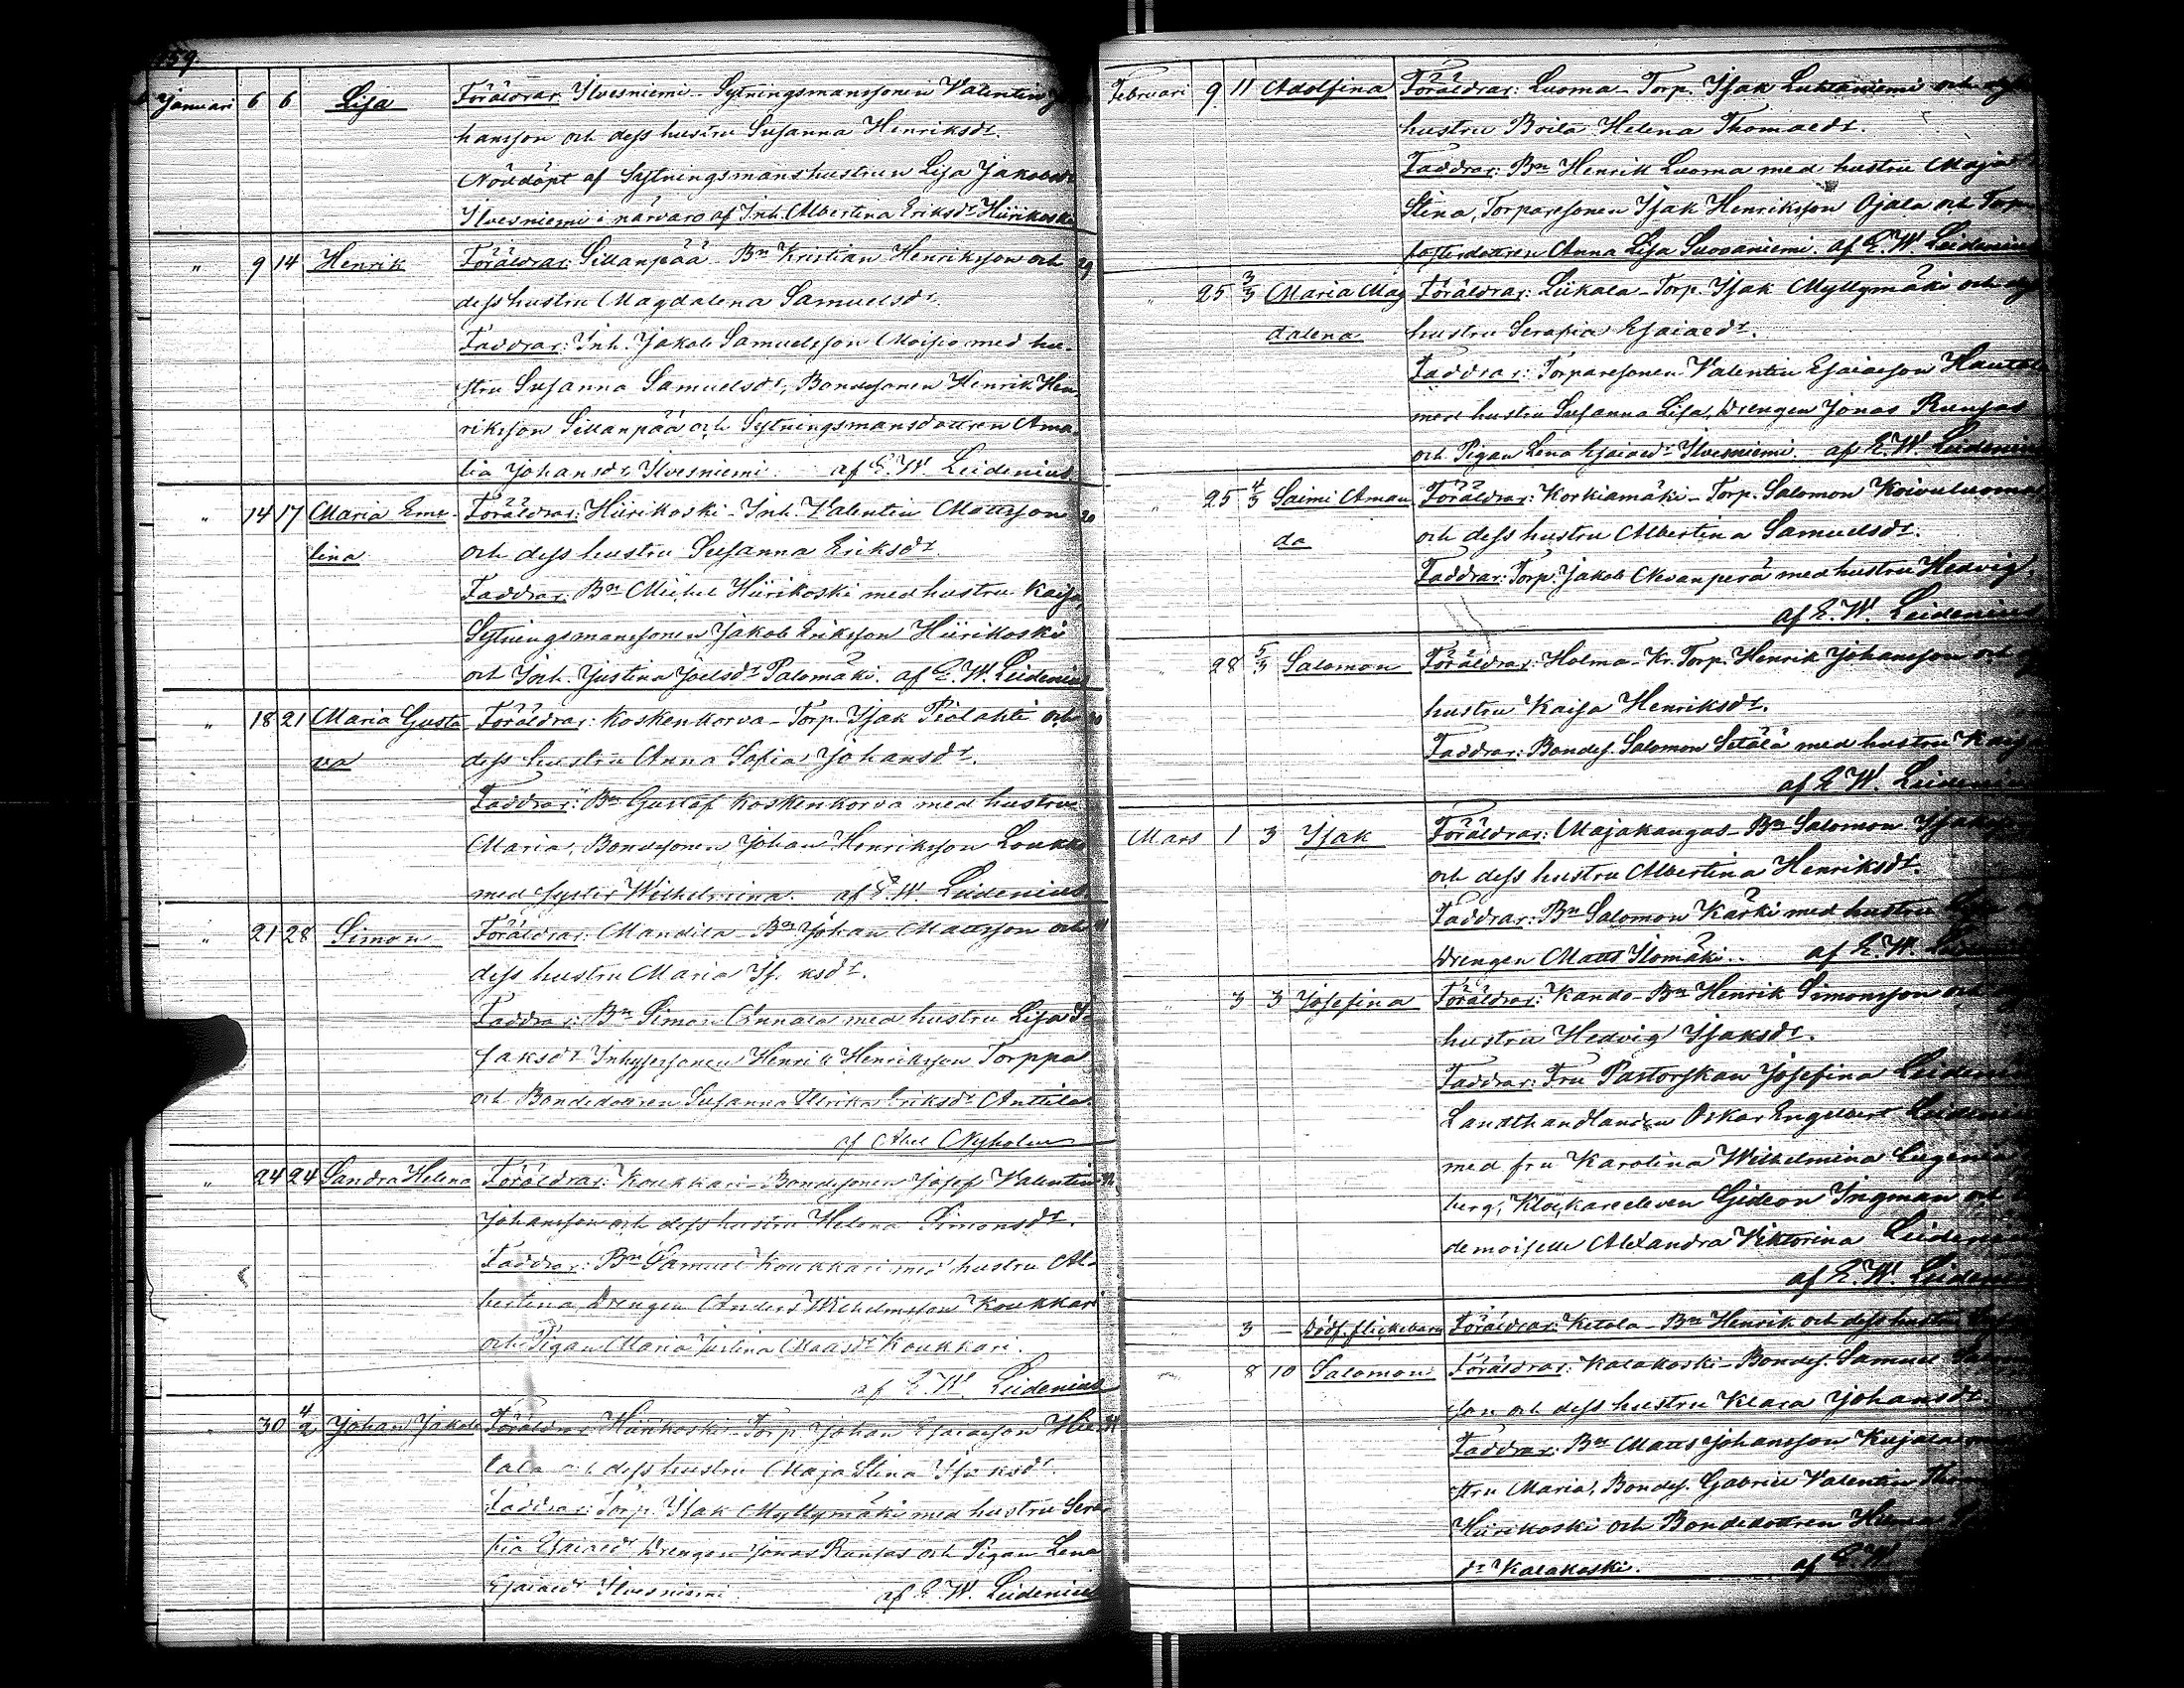 59.
Januari 6 6 Lisa Föräldrar Ilvesniemi - Sytningsmanssonen Valentin Jo
hansson och dess hustru Susanna Henriksdr.
Nöddöpt af Sytningsmanshustrun Lisa Jakobsdr
Ilvesniemi i närvaro af Inh. Albertina Eriksdr Hiirikoski
" 9 14 Henrik Föräldrar: Sillanpää - Bn Kristian Henriksson och 29
dess hustru Magdalena Samuelsdr.
Faddrar: Inh. Jakob Samuelsson Moisio med hu-
stru Susanna Samuelsdr, Bondesonen Henrik Hen-
riksson Sillanpää och Sytningsmansdottren Ama-
lia Johansdr Ilvesniemi. af E. W. Leidenius.
" 14 17 Maria Eme- Föräldrar: Hiirikoski - Inh. Valentin Mattsson 20
lina och dess hustru Susanna Eriksdr.
Faddrar: Bn Michel Hiirikoski med hustru Kaisa,
Sytningsmanssonen Jakob Eriksson Hiirikoski
och Inh. Justina Joelsdr Palomäki. af E. W. Leidenius
" 18 21 Maria Gusta- Föräldrar: Koskenkorva - Torp. Isak Piolahti och 30
va dess hustru Anna Sofia Johansdr.
Faddrar: Bn Gustaf Koskenkorva med hustru
Maria, Bondesonen Johan Henriksson Loukko
med syster Wilhelmina. af E. W. Leidenius.
" 21 28 Simon Föräldrar: Mandila - Bn Johan Mattsson och
dess hustru Maria Is. ksdr.
Faddrar: Bn Simon Annala med hustru Lisa I-
saksdr Inhysessonen Henrik Henriksson Torppa
och Bondedottren Susanna Ulrika Eriksdr Anttila.
af Abel Nyholm
" 24 24 Sandra Helena Föräldrar: Koukkari - Bondesonen Josef Valentin
Johansson och dess hustru Helena Simonsdr.
Faddrar: Bn Samuel Koukkari med hustru Al-
bertina, Drengen Anders Wilhelmsson Koukkari
och Pigan Maria Justina Maasdr Koukkari.
af E. W. Leidenius
" 30 4/2 Johan Jakob Föräldrar: Hiirikoski - Torp. Johan Esaiasson Hie-
tala och dess hustru Maja Stina Isaksdr.
Faddrar: Torp. Isak Myllymäki med hustru Sera-
fia Esaiaedr, Drengen Jonas Ranfas och Pigan Lena
Esaiaedr Ilvesniemi. af E. W. Leidenius
Februari 9 11 Adolfina Föräldrar: Luoma - Torp. Isak Luhtaniemi och dess
hustru Brita Helena Thomaedr.
Faddrar: Bn Henrik Luoma med hustru Maja
Stina, Torparesonen Isak Henriksson Ojala och Torpare
fosterdottren Anna Lisa Luosaniemi. af E. W. Leidenius
" 25 3/3 Maria Mag Föräldrar: Liikala - Torp. Isak Myllymäki och dess
dalena hustru Serafia Esaiaedr.
Faddrar: Torparesonen Valentin Esaiasson Hautala
med hustru Susanna Lisa, Drengen Jonas Ranfas
och Pigan Lena Esaiaedr Ilvesniemi. af E. W. Leidenius
" 25 4/3 Saimi Aman Föräldrar: Korkiamäki - Torp. Salomon Koivuluoma
da och dess hustru Albertina Samuelsdr.
Faddrar: Torp. Jakob Nevanperä med hustru Hedvig,
af E. W. Leidenius
" 28 5/3 Salomon Föräldrar: Holma - Kr. Torp. Henrik Johansson och
hustru Kaisa Henriksdr.
Faddrar: Bondes. Salomon Setälä med hustru Kaisa
af E. W. Leidenius
Mars 1 3 Isak Föräldrar: Majakangas - Bn Salomon Isaksson
och dess hustru Albertina Henriksdr.
Faddrar: Bn Salomon Kärki med hustru
Drengen Matts Ilomäki. af E. W.
" 3 3 Josefina Föräldrar: Kando - Bn Henrik Simonsson och
hustru Hedvig Isaksdr.
Faddrar: Fru Pastorskan Josefina Leidenius
Landthandlanden Oskar Engelbert Leidenius
med fru Karolina Wilhelmina Eugenia
berg, Klockareeleven Gideon Ingman och
demoiselle Alexandra Viktorina Leidenius
af E. W. Leidenius
" 3 — Dödf. flickebarn Föräldrar: Ketola - Bn Henrik och dess hustru
" 8 10 Salomon Föräldrar: Kalakoski - Bondes. Samuel
son och dess hustru Klara Johansdr.
Faddrar: Bn Matts Johansson Kujala
stru Maria, Bondes. Gabriel Valentin Thom
Hiirikoski och Bondedottren
dr Kalakoski. af E. W